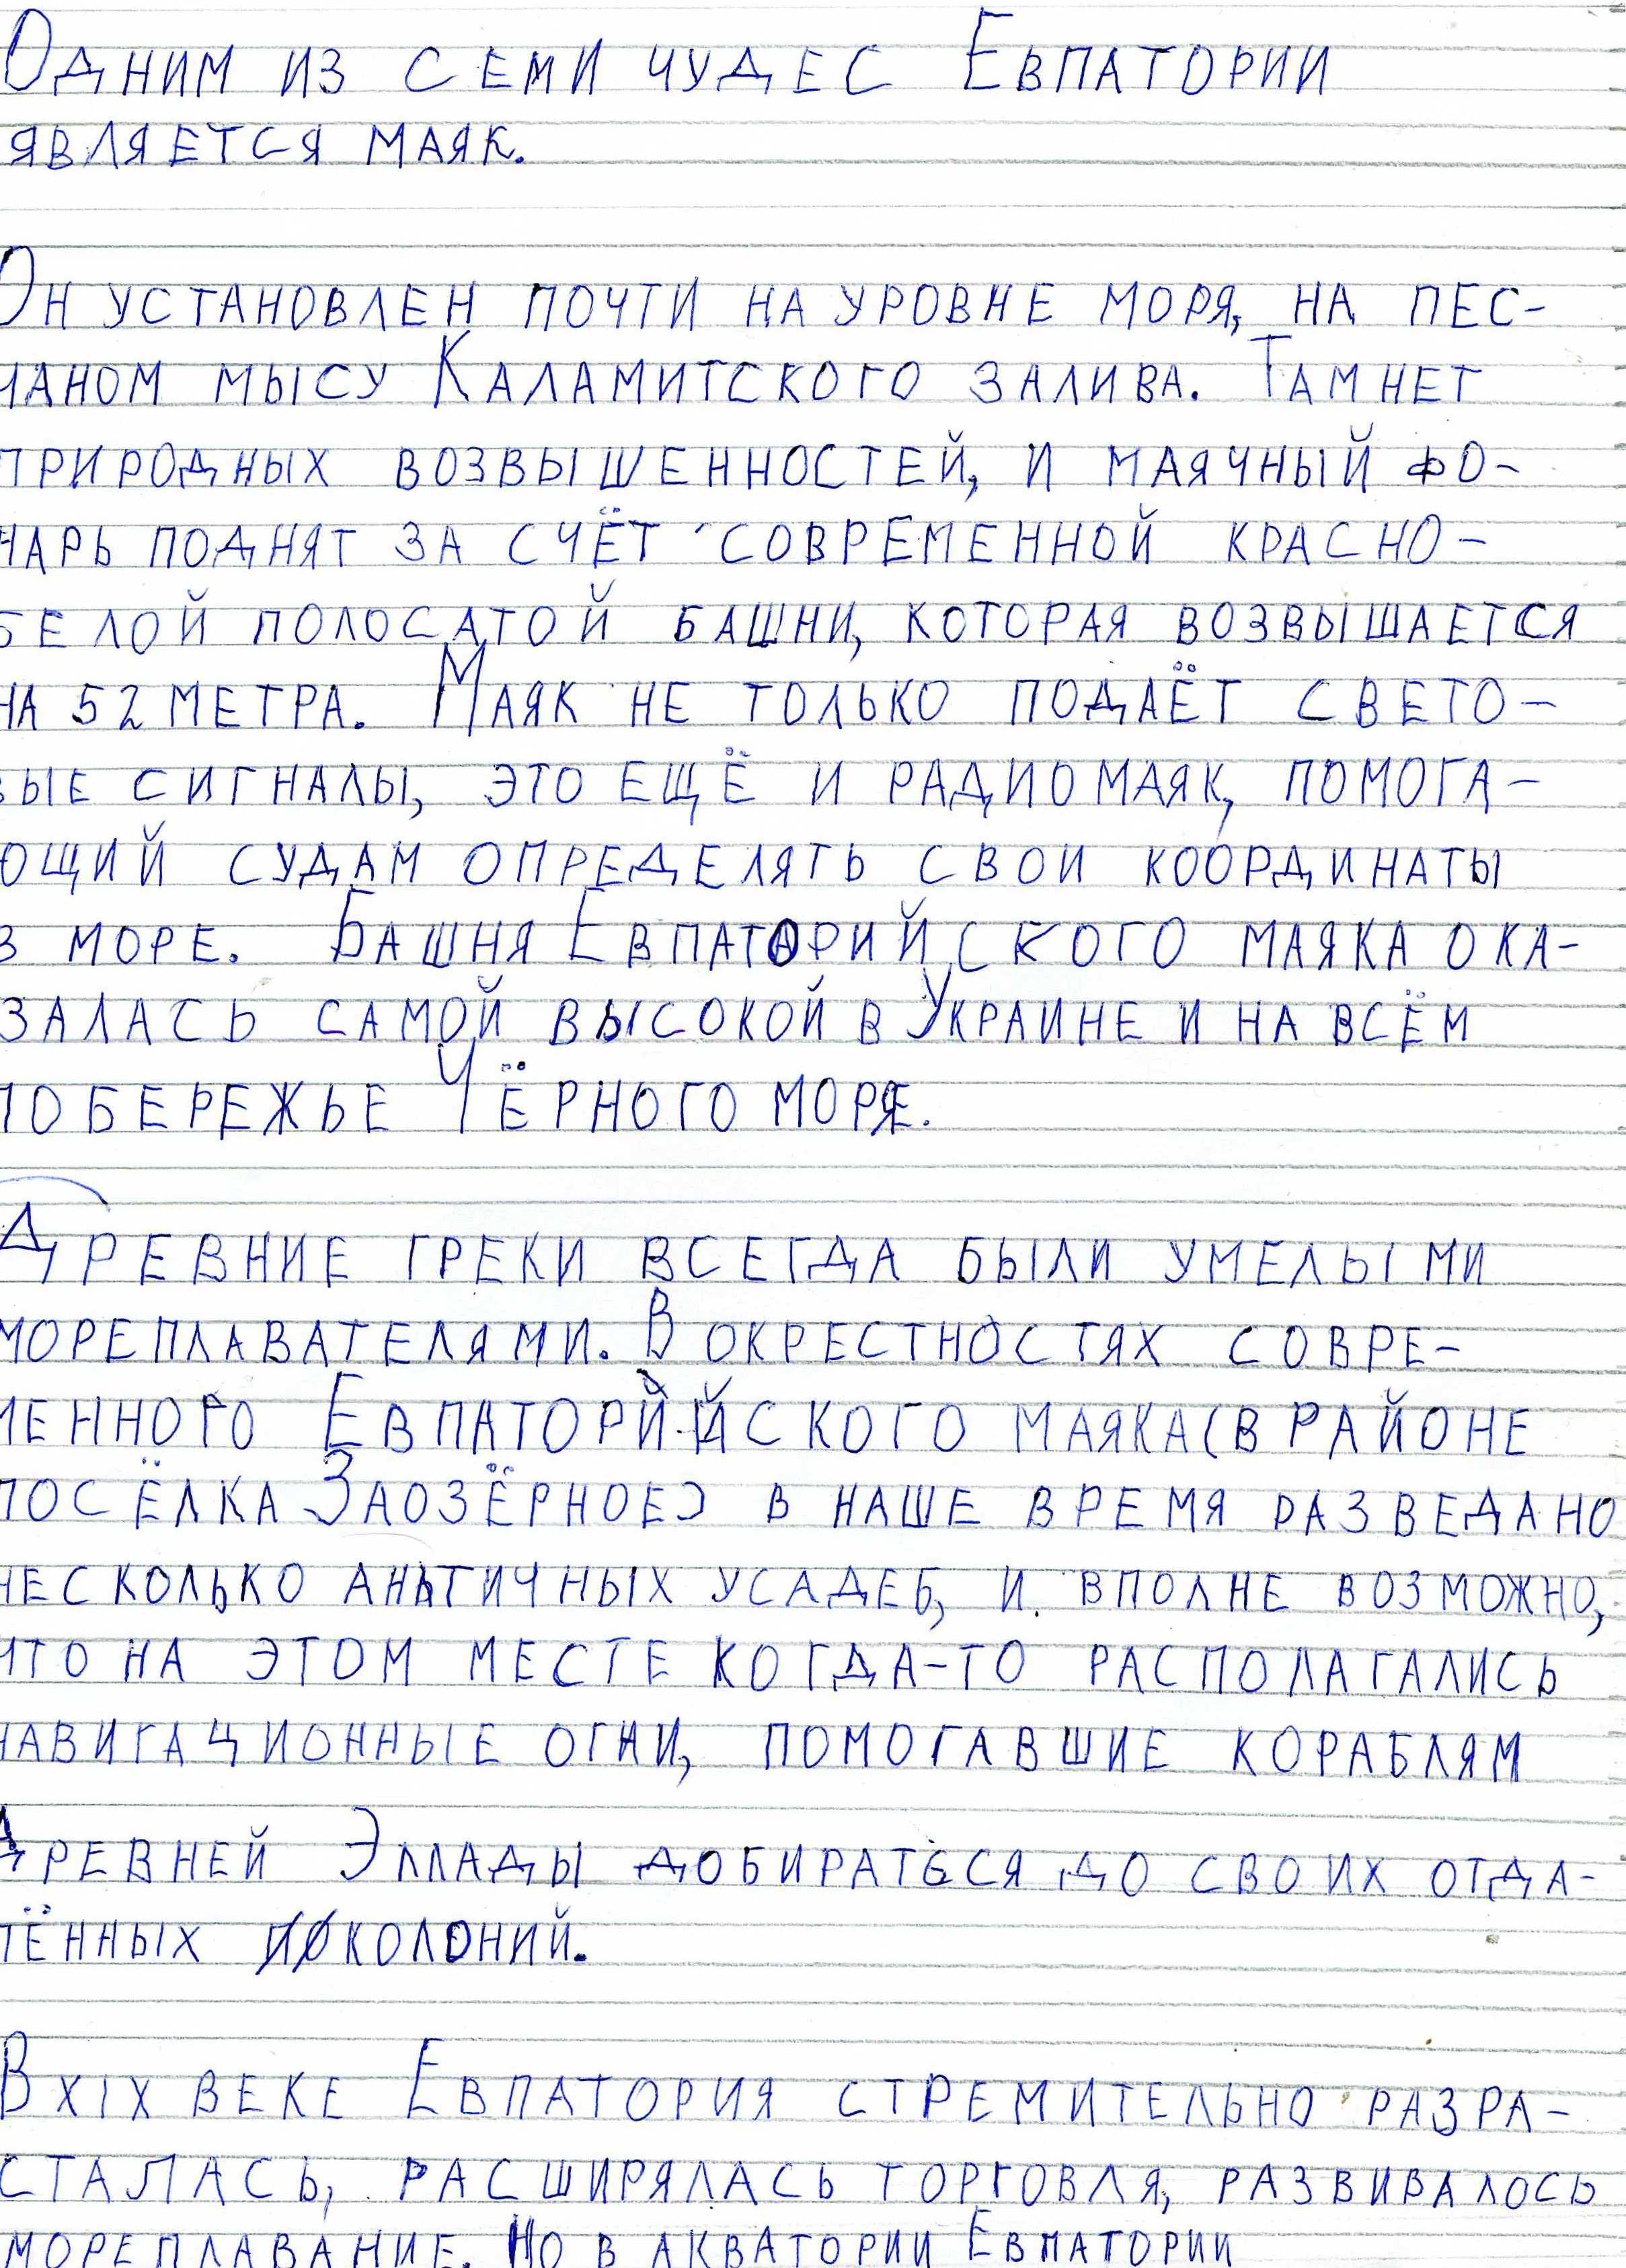 Одним из семи чудес Евпатории
является маяк.
Он установлен почти на уровне моря, на пес-
чаном мысу Каламитского залива. Там нет
природных возвышенностей, и маячный фо-
нарь поднят за счёт современной красно-
белой полосатой башни, которая возвышается
на 52 метра. Маяк не только подаёт свето-
вые сигналы, это ещё и радиомаяк, помога-
ющий судам определять свои координаты
в море. Башня Евпаторийского маяка ока-
залась самой высокой в Украине и на всём
побережье Чёрного моря.
Древние греки всегда были умелыми
мореплавателями. В окрестностях совре-
менного Евпаторийского маяка (в районе
посёлка Заозёрное) в наше время разведано
несколько античных усадеб, и вполне возможно,
что на этом месте когда-то располагались
навигационные огни, помогавшие кораблям
Древней Эллады добираться до своих отда-
лённых колоний.
В XIX веке Евпатория стремительно разра-
сталась, расширялась торговля, развивалось
мореплавание. Но в акватории Евпатории